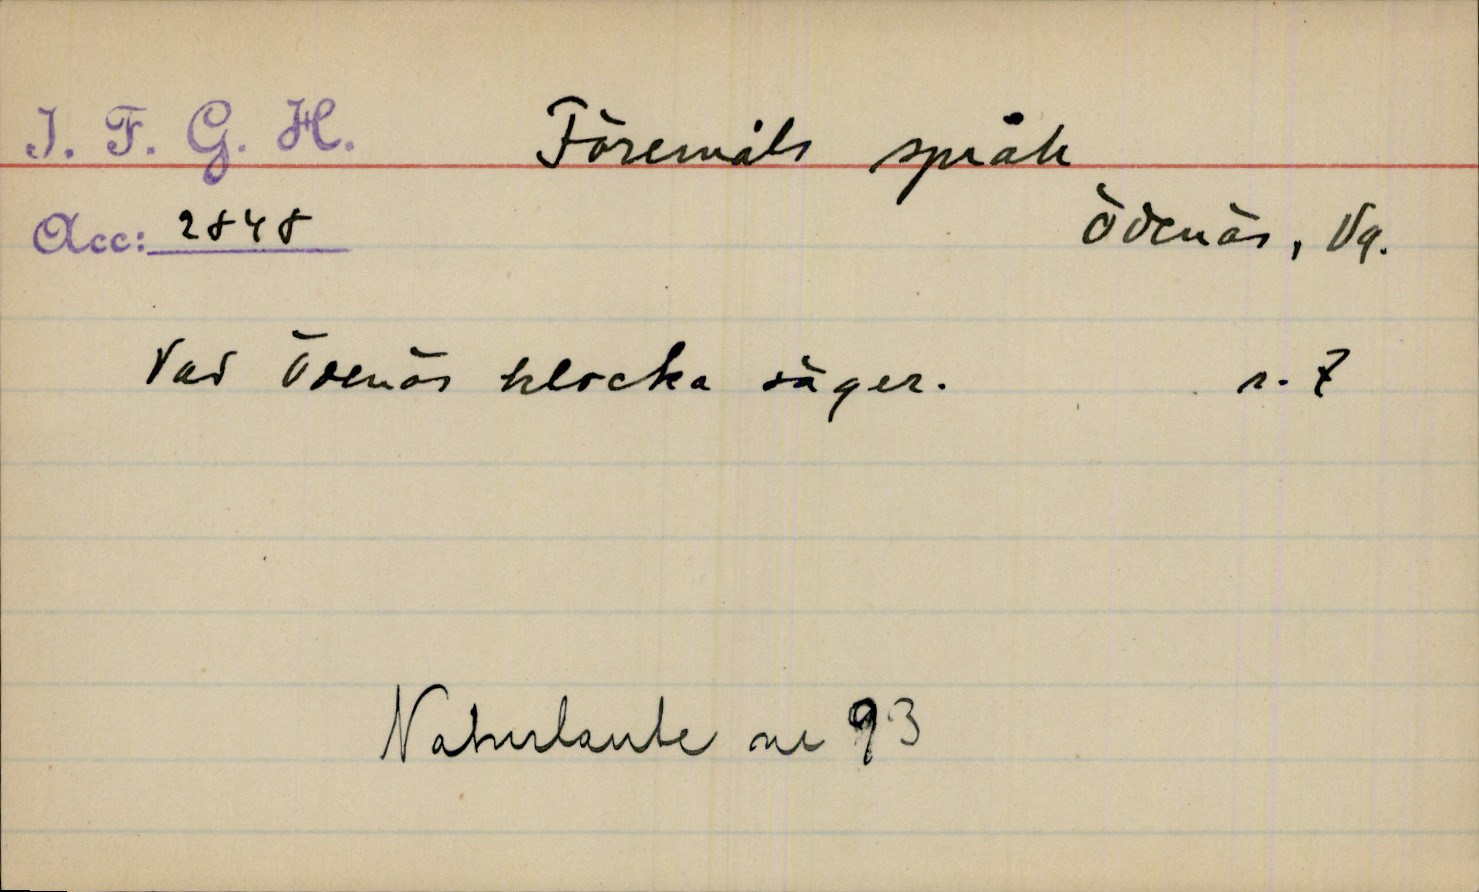 I. F. G. H. Föremåls språk
Acc: 2848 Ödenäs, Vg.
Vad Ödenäs klocka säger. s. 7
Naturlaute nr 93